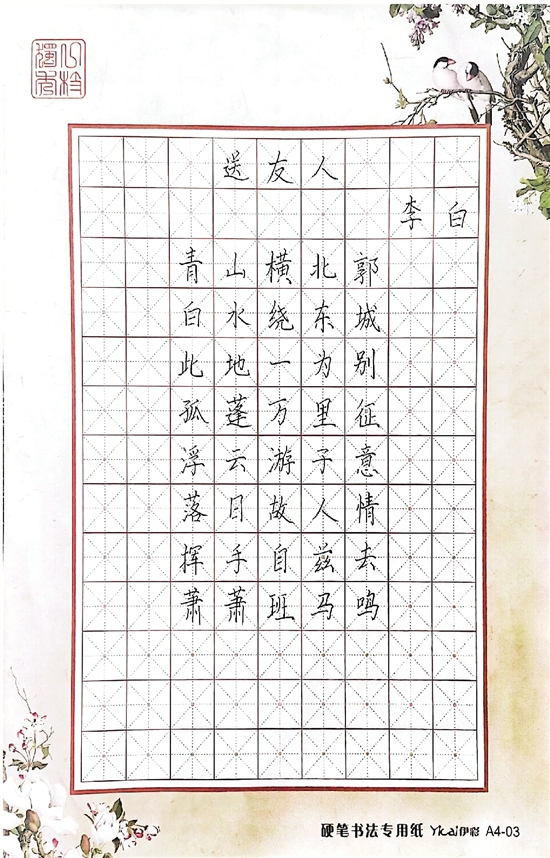 送友人
李白
青山横北郭
白水绕东城
此地一为别
孤蓬万里征
浮云游子意
落日故人情
挥手自兹去
萧萧班马鸣
硬笔书法专用纸 Yicai伊彩 A4-03